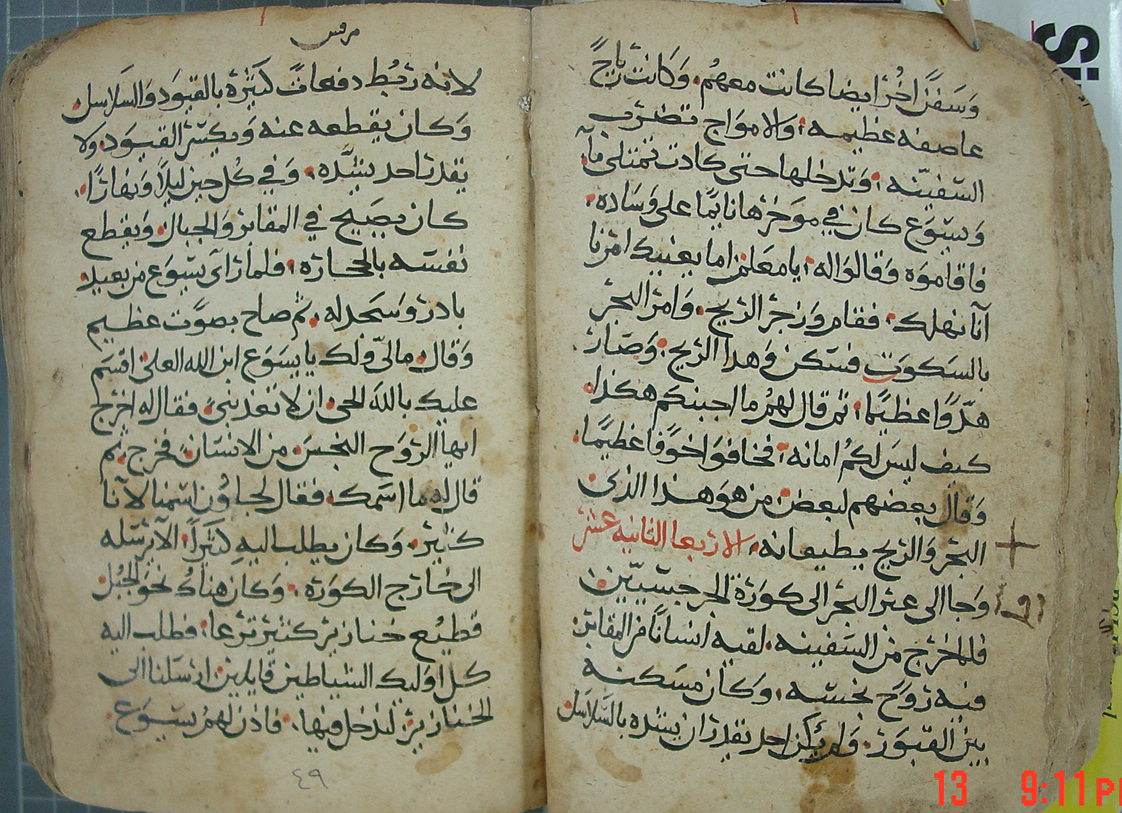 وسفنًا اخرا ايضا كانت معهم. وكانت رياح
عاصفه عظيمه. والامواج تضرب
السفينه. وتدخلها حتى كادت تمتلى مآ.
ويسوع كان في موخرها نايمًا على وساده.
فاقاموه وقالوا له. يا معلم اما يعنيك امرنا
آنا نهلك. فقام وزجر الريح. وامر البحر
بالسكوت فسكن وهدا الريح. وصار
هدوًا عظيمًا. ثم قال لهم ما اجبنكم هكذا.
كيف ليس لكم امانه. فخافوا خوفًا عظيمًا.
وقال بعضهم لبعض من هو هذا الذي
البحر والريح يطيعانه. الاربعا الثانيه عشر
وجا الى عبر البحر الى كورة الجرجسيين
فلما خرج من السفينه. لقيه انسانًا من المقابر
فيه روح نجسه. وكان مسكنه
بين القبور. ولم يكن احد يقدر ان يشده بالسلاسل
مرقس
لانه ربط دفعات كثيرة بالقيود والسلاسل.
وكان يقطعه عنه ويكسر القيود. ولا
يقدر احد يشده. وفي كل حين ليلاً ونهارًا.
كان يصيح في المقابر والجبال. ويقطع
نفسه بالحجاره. فلما راى يسوع من بعيد
بادر وسجد له. ثم صاح بصوت عظيم
وقال. مالي ولك يا يسوع ابن الله العلي. اقسم
عليك بالله الحي. ان لا تعذبني. فقال له اخرج
ايها الروح النجس من الانسان. فخرج. ثم
قال له ما اسمك. فقال لجاوون اسمنا لآنا
كثير. وكان يطلب اليه كثيرًا. الا يرسله
الى خارج الكورة. وكان هناك نحو الجبل
قطيع خنازير كثير ترعا. فطلب اليه
كل اوليك الشياطين قايلين. ارسلنا الى
الخنازير لندخل فيها. فاذن لهم يسوع
٤٩
13 9:11